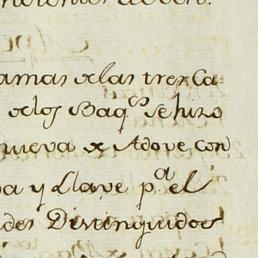 amas delas tres Ca-
delos Baq.s se hizo
nueva de Adove con
a y Llave p.a el
des Distinguidos